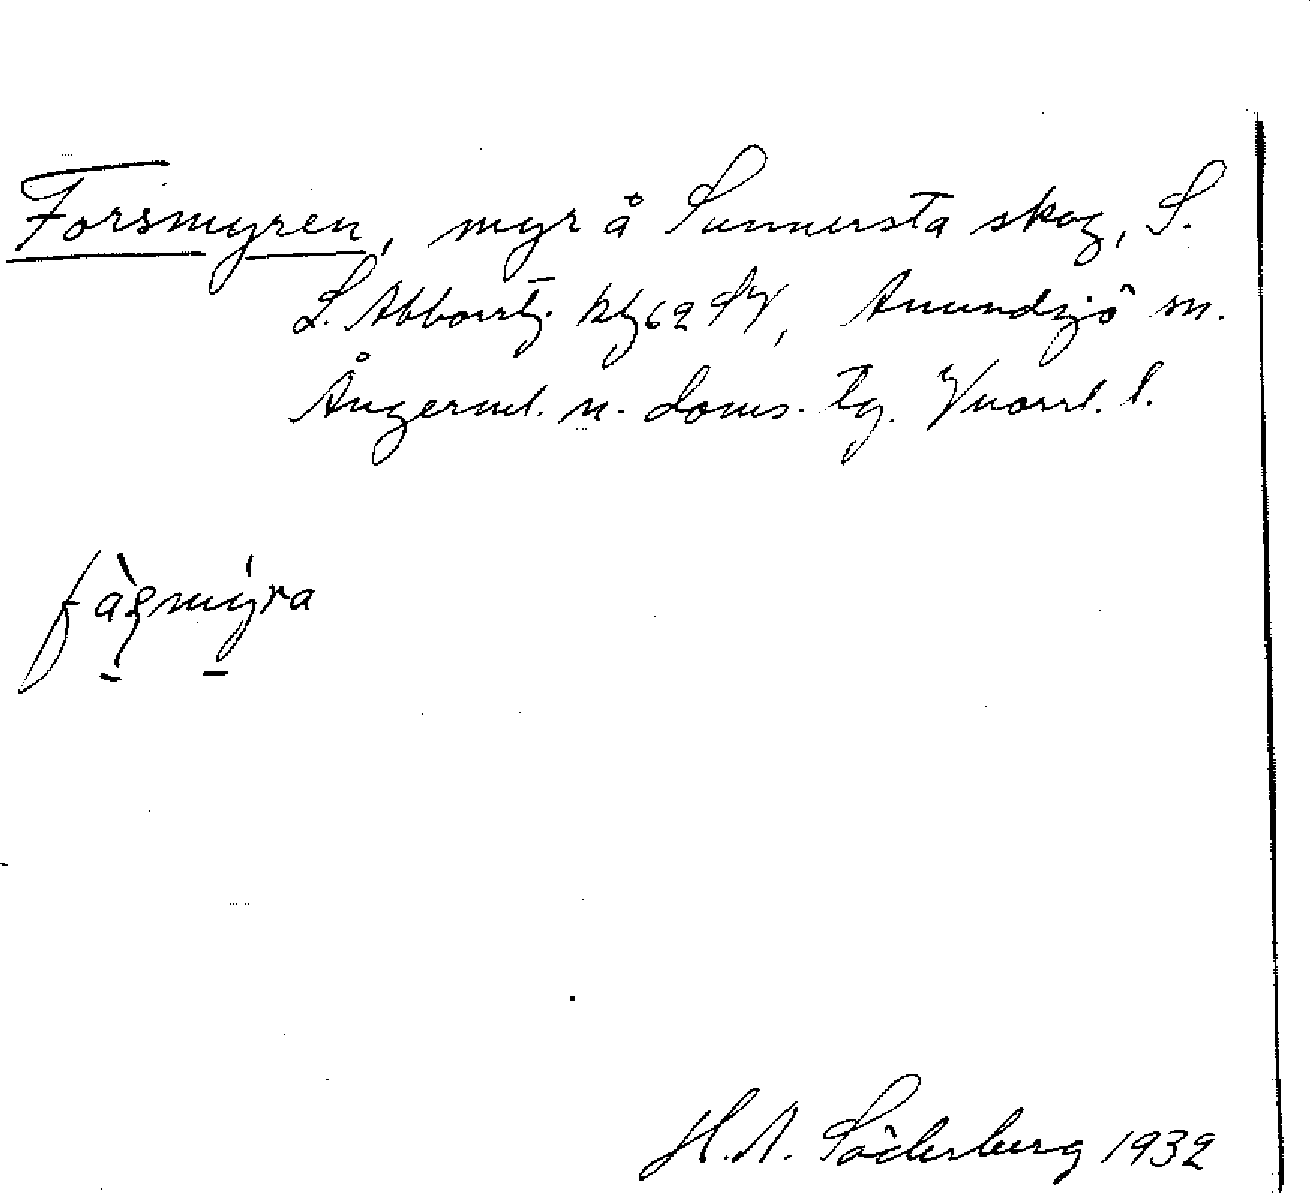 Forsmyren, myr å Sunnersta skog, S.
L. Abborrtj. kbl 62 SV, Anundsjö sn.
Ångerml. n. doms. tg. Vnorrl. l.
fàʂmýra
H. A. Söderberg 1932